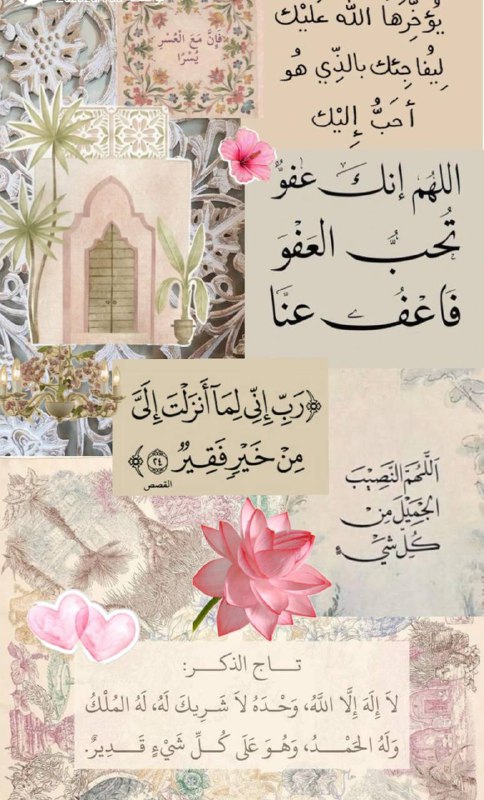 فَإِنَّ مَعَ الْعُسْرِ
يُسْرًا
يُؤخِّرُهَا اللّٰه عَليْك
لِيُفاجِئك بالذِّي هُو
أحَبُّ إِليْك
اللهُم إنكَ عَفوٌّ
تُحبُّ العَفْوَ
فَاعْفُ عنَّا
﴿رَبِّ إِنِّي لِمَآ أَنزَلْتَ إِلَيَّ
مِنْ خَيْرٍ فَقِيرٌ ٢٤﴾
القصص
اَللَّهُمَّ النَّصِيْبَ
الجَمِيْلَ مِن
كُلِّ شَيْءٍ
تاج الذكر:
لاَ إِلَهَ إِلَّا اللَّهُ، وَحْدَهُ لاَ شَرِيكَ لَهُ، لَهُ المُلْكُ
وَلَهُ الحَمْدُ، وَهُوَ عَلَى كُلِّ شَيْءٍ قَدِيرٌ.